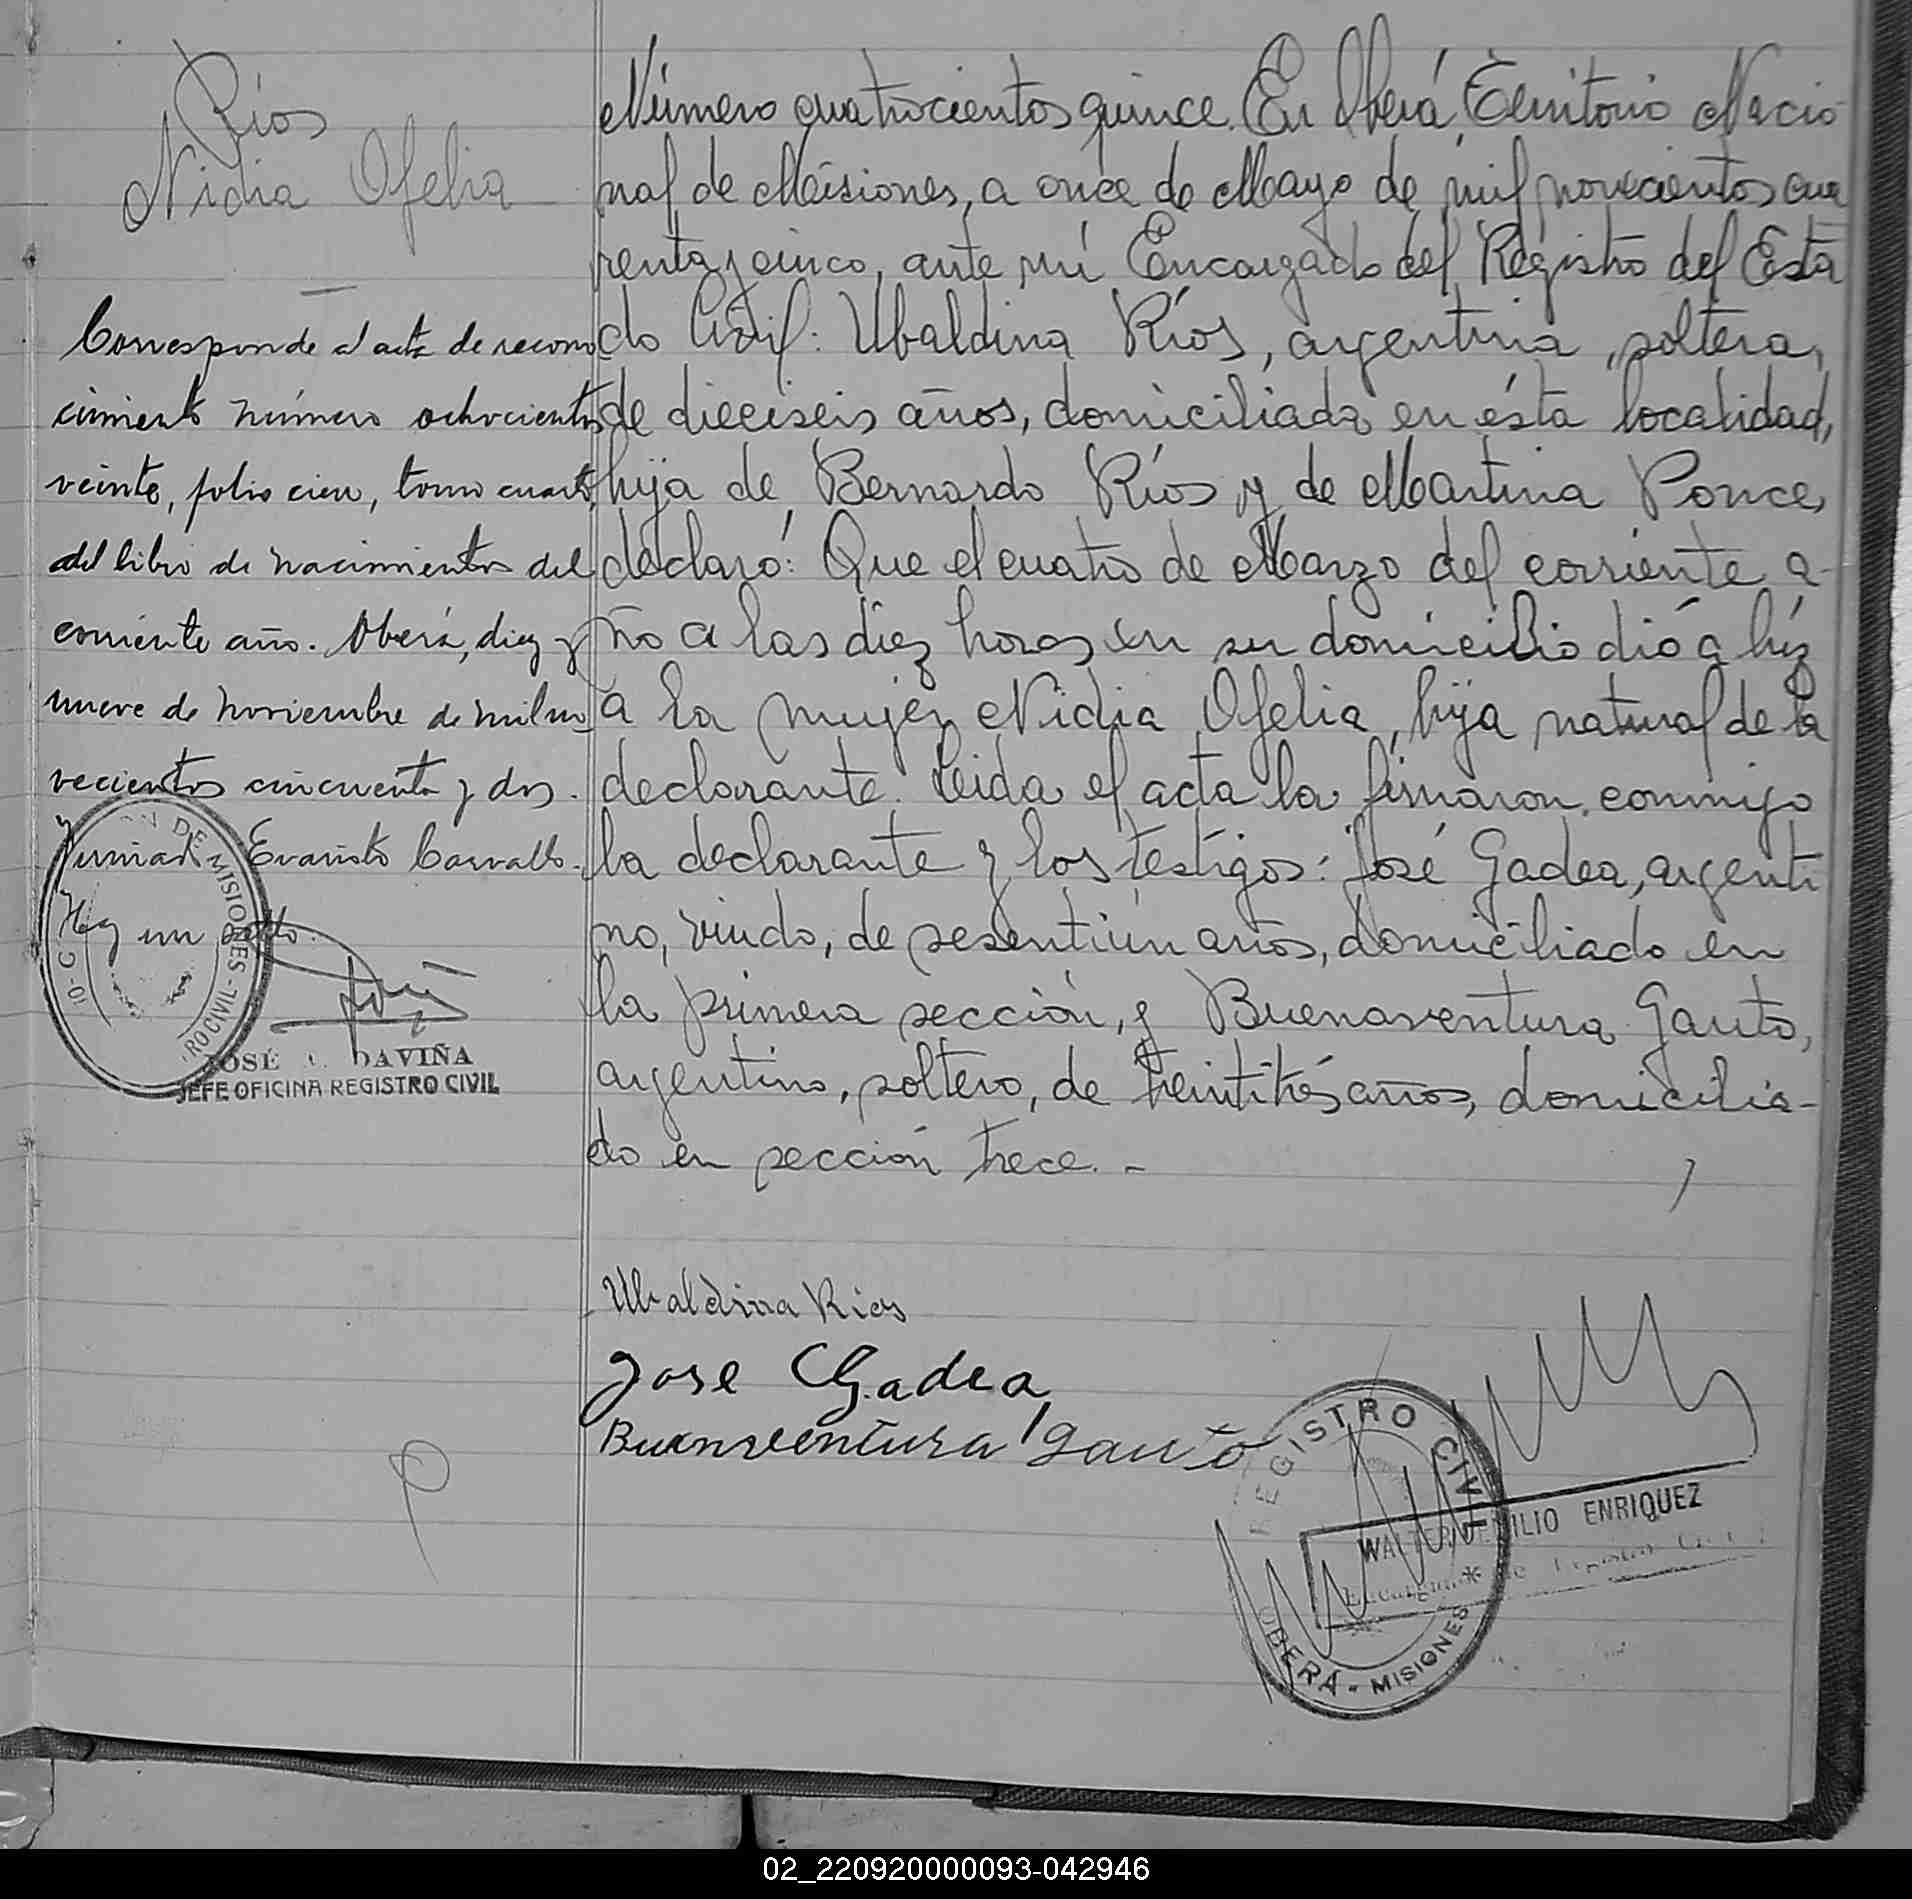 Ríos
Nidia Ofelia
Corresponde al acta de recono
cimiento número ochocientos
veinte, folio cien, tomo cuarto,
del libro de nacimientos del
corriente año. Oberá, diez y
nueve de noviembre de mil no-
vecientos cincuenta y dos.
Firmado Evaristo Carvallo.
Hay un sello.
DE MISIONES - RO CIVIL -
JOSÉ DAVIÑA
JEFE OFICINA REGISTRO CIVIL
Número quatrocientos quince. En Oberá, Territorio Nacio
nal de Misiones, a once de Mayo de mil novecientos cua
renta y cinco, ante mí Encargado del Registro del Esta
do Civil: Ubaldina Ríos, argentina, soltera,
de dieciseis años, domiciliada en ésta localidad,
hija de Bernardo Ríos y de Martina Ponce,
declaró: Que el cuatro de Marzo del corriente a-
ño a las diez horas en su domicilio dió a lúz
a la mujer Nidia Ofelia, hija natural de la
declarante. Leida el acta la firmaron conmigo
la declarante y los testigos: José Gadea, argenti
no, viudo, de sesentiún años, domiciliado en
la primera sección, y Buenaventura Gauto,
argentino, soltero, de treintitrés años, domicilia-
do en sección trece. -
Ubaldina Rios
Jose Gadea
Buenaventura Gauto
REGISTRO CIVIL
WALTER EMILIO ENRIQUEZ
OBERÁ - MISIONES
02_220920000093-042946